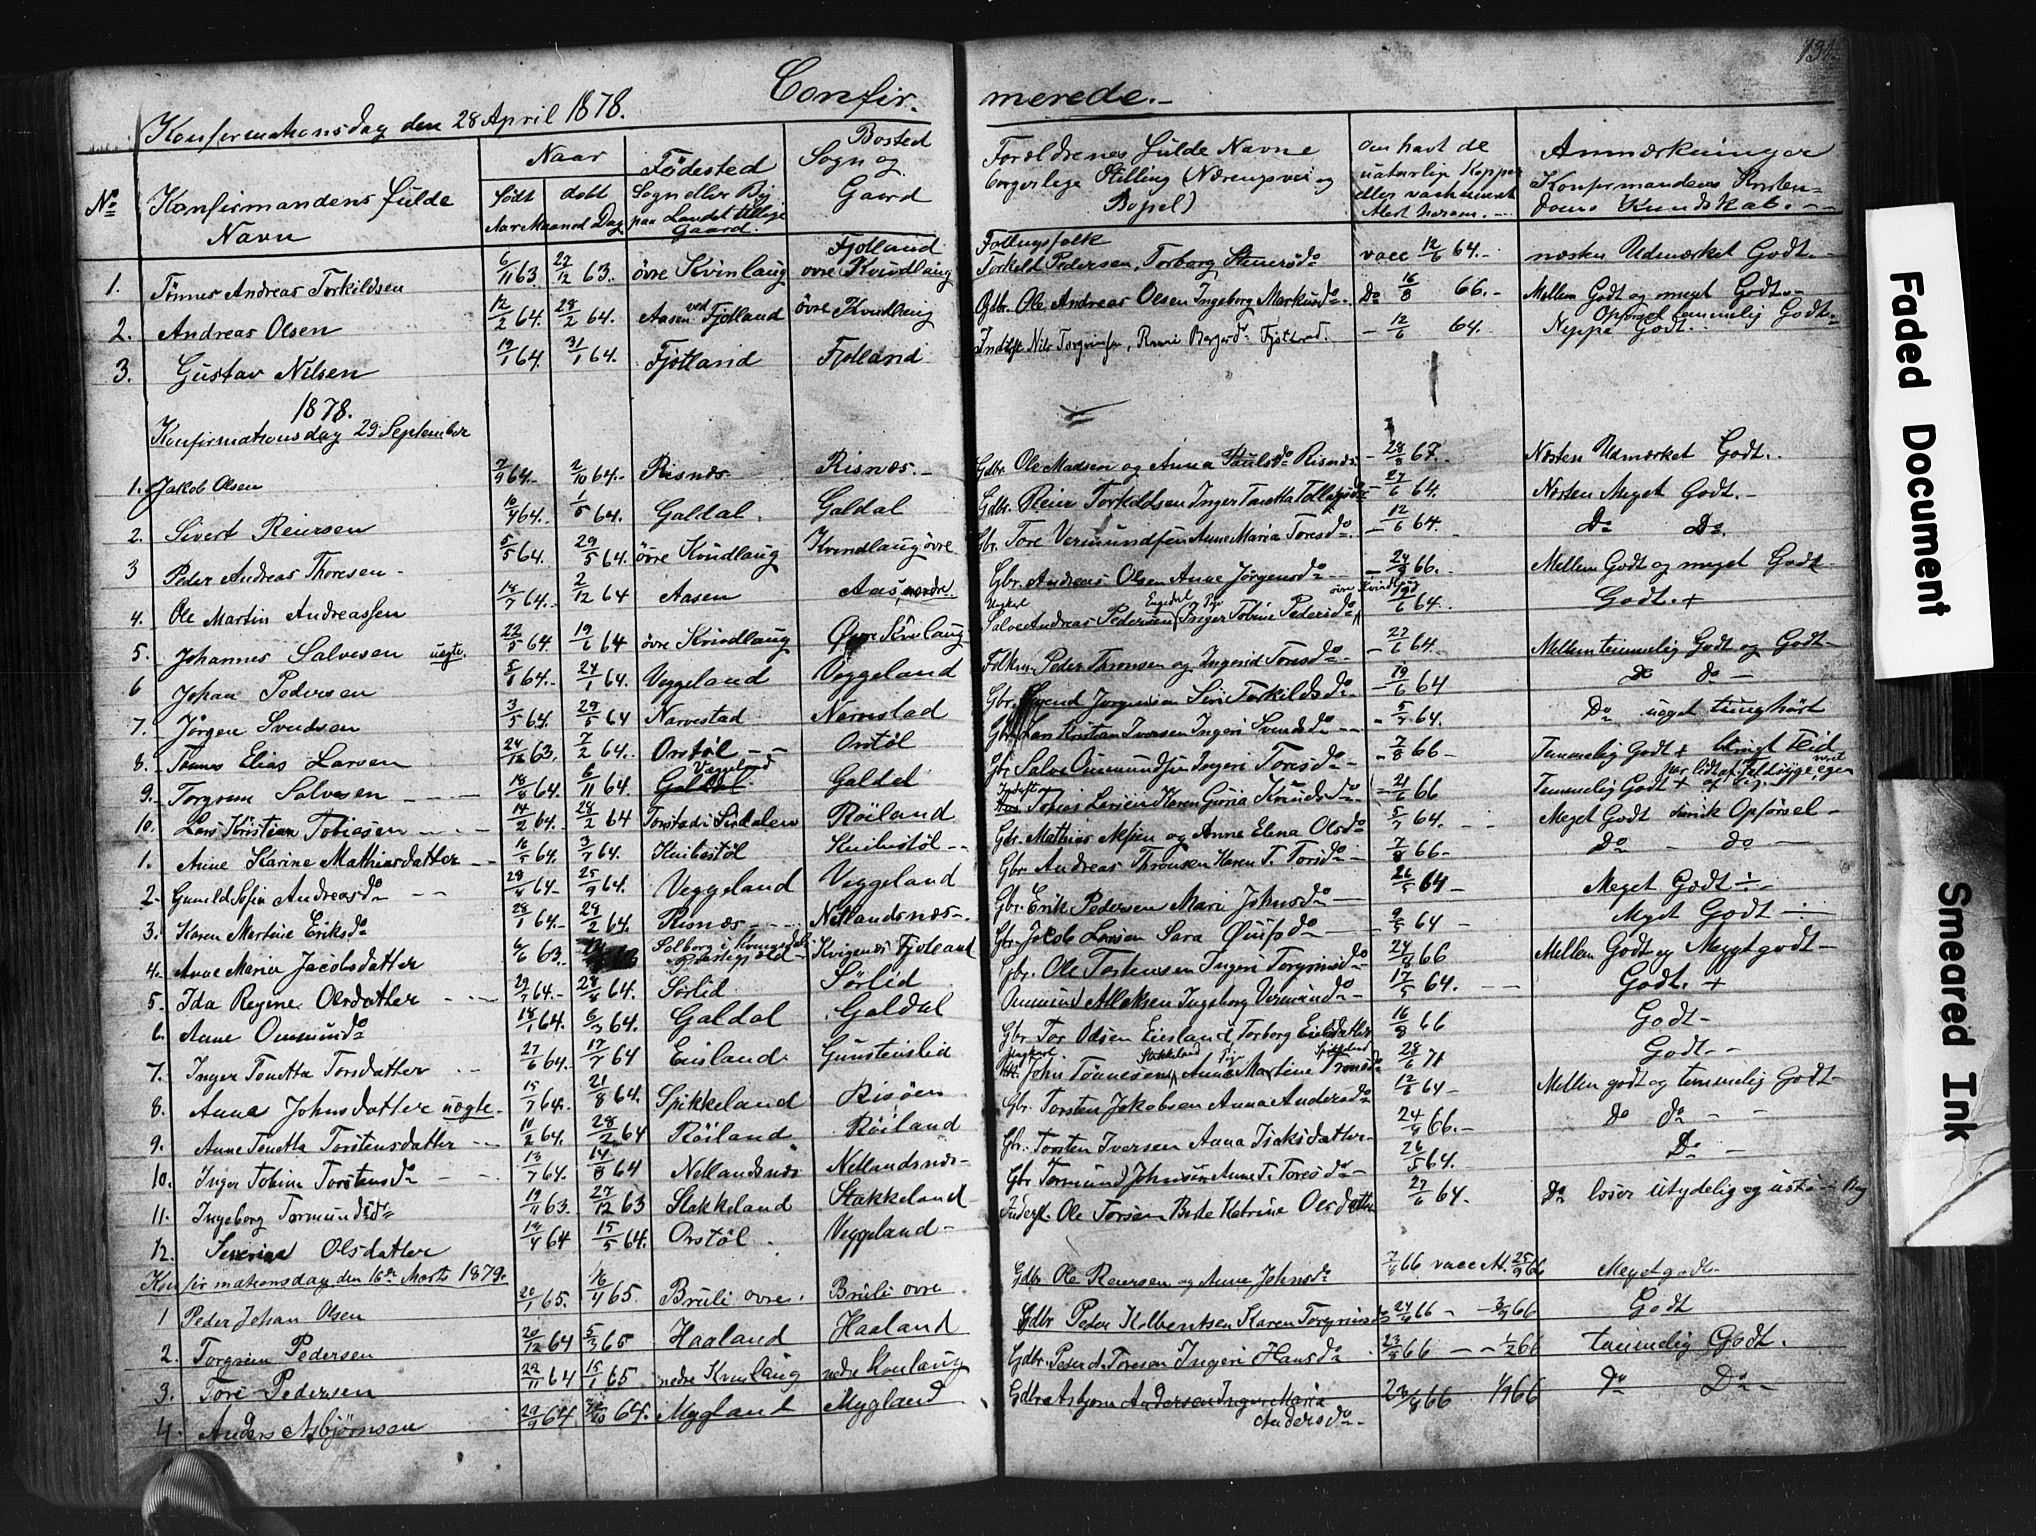 134.
Confirmerede.
Konfirmationsdag den 28 April 1878.
No Konfirmandens fulde Navn Naar Födt döbt Aar Maaned Dag Födested Sogn eller By paa Landet tillige Gaard. Bosted Sogn og Gaard Forældrenes fulde Navne borgerlige Stilling (Næringsvei og Bopel) om havt de naturlige Kopper eller vaccineret Anmærkninger Konfirmandens Kristendoms Kundskab.
1. Tönnes Andreas Torkildsen 6/11 63 27/12 63. övre Kvinlaug Fjotland övre Kvindlaug Torkeld Pedersen, Torborg vacc 12/6 64. næsten Udmærket Godt.
2. Andreas Olsen 12/2 64. 28/2 64. Aasen ved Fjotland övre Kvindlaug Gbr. Ole Andreas Olsen Ingeborg Markusdo Do 16/8 66. Mellem Godt og meget Godt. Opförsel temmelig Godt.
3. Gustav Nilsen 19/1 64. 31/1 64. Fjotland Fjotland - 12/6 64. Neppe Godt.
1878.
Konfirmationsdag 29 September
1. Jakob Olsen 7/9 64. 2/10 64. Risnæs Risnæs Gdbr. Ole Madsen og Anna Paulsdo Risnæs - 28/8 67. Næsten Udmærket Godt.
2. Sivert Reiersen 10/4 64. 1/5 64. Galdal. Galdal Gdbr. Reier Torkildsen Inger Tonetta 27/6 64. Næsten Meget Godt.
3 Peder Andreas Thoresen 5/5 64. 29/5 64. övre Kvindlaug Kvindlaug övre Gbr. Tore Vermundsen Anne Maria Toresdo. - 12/6 64. Do Do.
4. Ole Martin Andreassen 18/7 64. 2/12 64 Aasen Aas nordre. Gbr. Andreas Olsen Anne Jörgensdo - 24/9 66. Mellem Godt og meget Godt
5. Johannes Salvesen uegte. 22/5 64. 19/6 64 övre Kvindlaug Övre Kvinlaug Ungkarl Salve Andreas Pedersen Inger Tobine Pedersdo övre Kvindlaug 6 64. Godt. +
6 Johan Pedersen 5/1 64. 24/1 64. Veggeland Veggeland Peder Thronsen og Ingerid Toresdo. - 27/6 64. Mellem temmelig Godt og Godt
7. Jörgen Svendsen 3/5 64. 29/5 64 Narvestad Narvestad Gbr. Svend Jörgensen Siri Torkildsdo. - 19/6 64 Do do
8. Tönnes Elias Larsen 24/12 63. 7/2 64. Orstöl Orstöl Gbr. Lars Kristian Iversen Ingeri Svendsdo - 5/7 64. Do noget tunghört
9. Torgrim Salvesen 18/8 64. 6/11 64. Veggeland Galdal Galdal Gbr. Salve Ommundsen Ingeri Toresdo - 7/8 66 Temmelig Godt +
10. Lars Kristian Tobiasen 14/2 64. 28/2 64 Torstad i Sirdalen Röiland Tobias Larsen Karen Knudsdo - 21/6 66 Temmelig Godt +
1. Anne Karine Mathiasdatter 16/5 64. 3/7 64. Knibestöl Knibestöl Gbr. Mathias og Anne Elena Olsdo 5/7 64. Meget Godt Opförsel
2. Gunild Sofia Andreasdo 28/8 64. 25/9 64. Veggeland Veggeland Gbr. Andreas Thronsen Karen T. Torsdo 7/8 66 Do do
3. Karen Martine Eriksdo 28/1 64. 29/2 64. Risnæs Netlandsnæs Gbr. Erik Pedersen Mari Johnsdo 26/5 64 Meget Godt
4. Anne Maria Jacobsdatter 6/6 63. Solborg i Kvinesdals Præstegjeld Kvignæs Fjotland Gbr. Jacob Larsen Sara 9/5 64 Meget Godt
5. Ida Regine Olsdatter 29/7 64. 28/8 64. Sörlid Sörlid Gbr. Ole Torkensen Ingeri Torgrimsdo 24/8 66 Mellem Godt og Meget godt
6. Anne Ommunsdo 18/1 64. 6/3 64. Galdal Galdal Ommund Atlaksen Ingeborg Vermundsdo 17/5 64. Godt. +
7. Inger Tonetta Torsdatter 27/6 64. 17/7 64 Eiesland Gunsteinslid Gbr. Tor Odsen Eiesland, Torborg 16/8 66 Godt
8. Anna Johnsdatter uægte. 15/7 64. 21/8 64. Spikkeland Risöen Ungkarl. John Tönnesen Stakkeland, Pige Anne Martine Tronsdo Spikkeland 28/6 71 Godt
9. Anne Tonetta Torstensdatter 10/2 64. 28/2 64 Röiland Röiland Gbr. Torsten Jakobsen Anna Andersdo 12/6 64 Mellem godt og temmelig Godt
10. Inger Tobine Torstensdo 13/7 64. 14/8 64 Netlandsnæs Netlandsnæs Gbr. Torsten Iversen Anna Isaksdatter 24/9 66. Do Do
11. Ingeborg Tormundsdo 19/11 63. 27/12 63 Stakkeland Stakkeland Gbr Tormund Johnsen Anne T. Toresdo 26/5 64. Do
12. Severine Olsdatter 14/4 64 15/5 64. Orstöl Veggeland Inderst. Ole Torsen Berte Katrine Olsdatter 27/6 64. Do læser utydelig og
Konfirmationsdag den 16de Marts 1879.
1 Peder Johan Olsen 20/1 65. 16/4 65. Bruli övre. Bruli övre Gdbr Ole Reiersen og Anne Johnsdo 7/8 66 vacc At. 25/9 66 Meget godt
2. Torgrim Pedersen 20/12 64 5/3 65 Haaland Haaland Gdbr Peder Kolbentsen Karen Torgrimsdo 24/8 66 - 3/9 66 Godt
3. Tore Pedersen 29/11 64 15/1 65 nedre Kvinlaug nedre Kvinlaug Gdbr. Peder A. Toresen Ingeri Hansdo 23/8 66 - 1/2 66 temmelig Godt.
4. Anders Asbjörnsen 29/9 64 64. Mygland Mygland Gdbr Asbjörn Andersen Inger Maria Andersdo. 23/8 66 1/9 66 Do Do
Faded Document
Smeared Ink